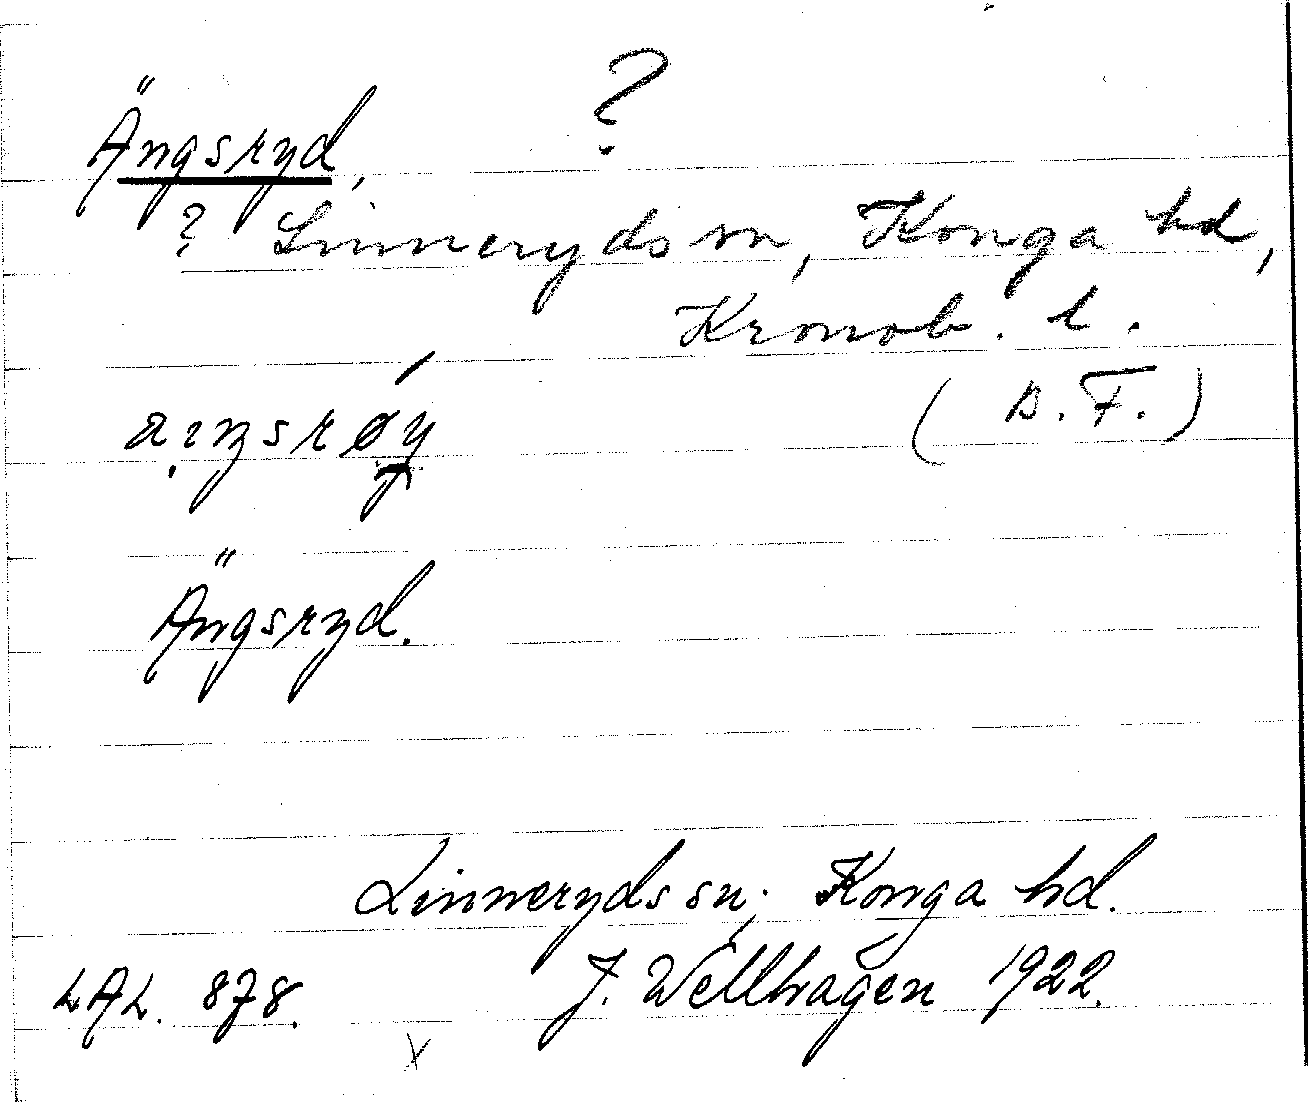 Ängsryd, ?
? Linneryds sn, Konga hd,
Kronob. l.
(D.F.)
Ängsryd.
Linneryds sn; Konga hd.
LAL. 878. J. Wellhagen 1922.
X